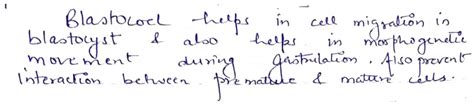 Blastocoel helps in cell migration in
blastocyst & also helps in morphogenetic
movement during gastrulation. Also prevent
interaction between premature & mature cells.